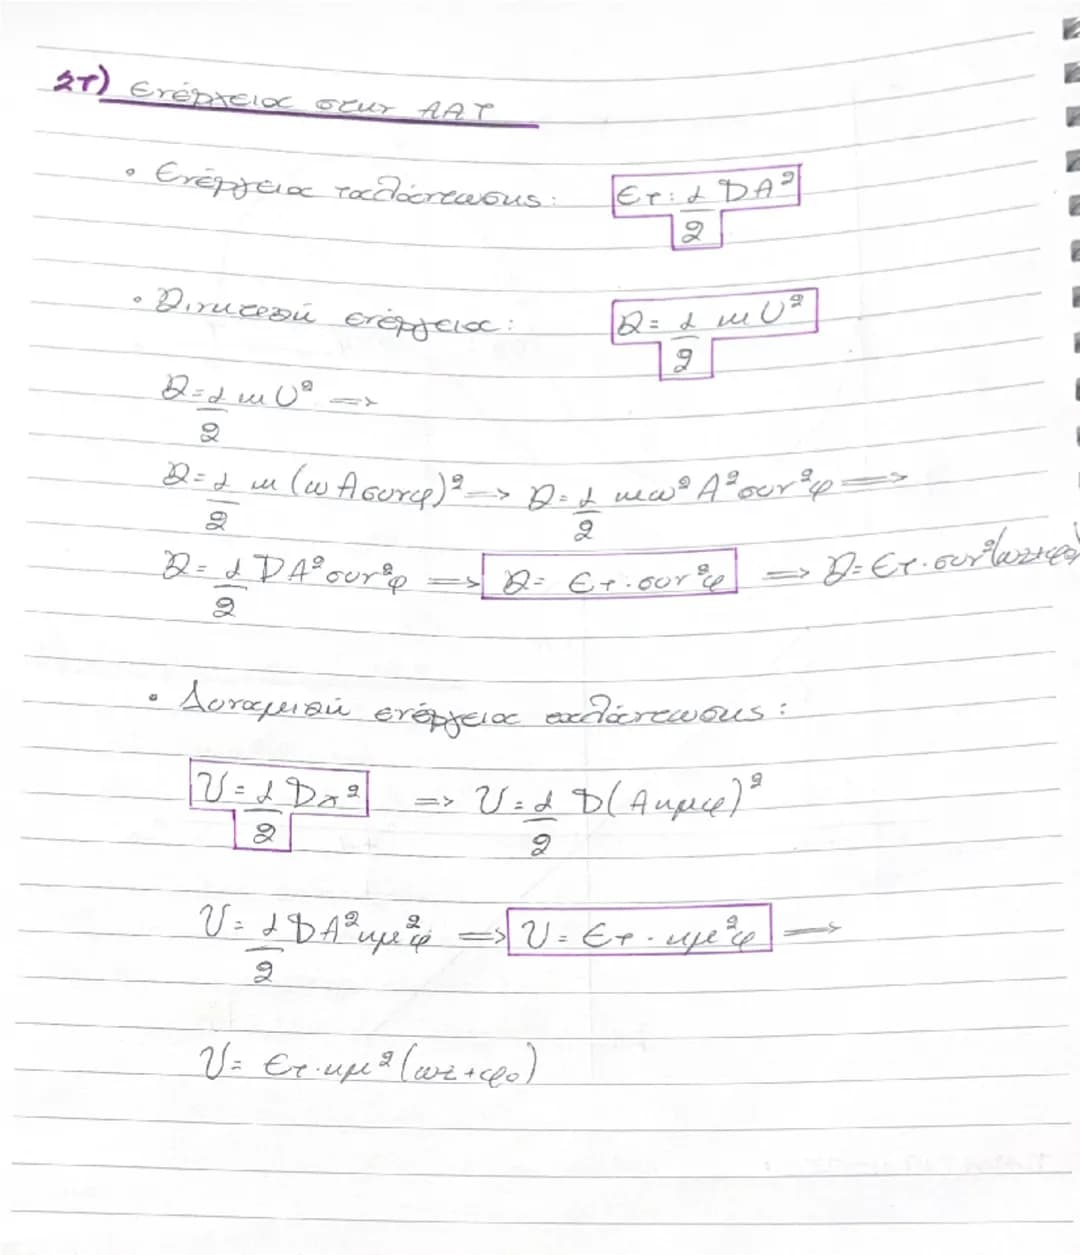 ΣΤ) Ενέργεια στην ΑΑΤ
• Ενέργεια ταλάντωσης: Ετ: 1/2 DA²
• Κινητική ενέργεια: K = 1/2 m υ²
K = 1/2 m υ² =>
K = 1/2 m (ω Α συνφ)² => K = 1/2 m ω² Α² συν²φ =>
K = 1/2 DA² συν²φ => K = Ετ · συν²φ => K = Ετ · συν²(ωt+φ₀)
• Δυναμική ενέργεια ταλάντωσης:
U = 1/2 Dx² => U = 1/2 D(Aημφ)²
U = 1/2 DA² ημ²φ => U = Ετ · ημ²φ =>
U = Ετ · ημ²(ωt+φ₀)